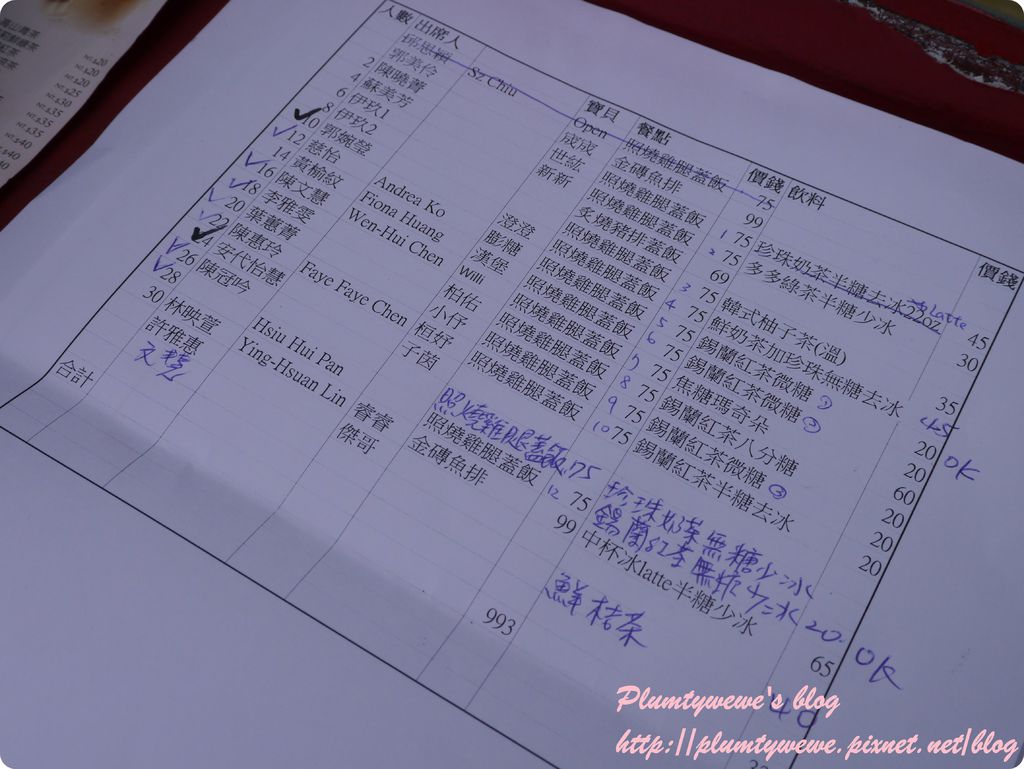 人數 出席人 寶貝 餐點 價錢 飲料 價錢
邱思穎 Sz Chiu Open 照燒雞腿蓋飯 75
2 郭美伶 成成 金磚魚排 99
4 陳曉菁 世紘 照燒雞腿蓋飯 1 75 珍珠奶茶半糖去冰22oz 冰Latte 45
6 蘇美芳 新新 照燒雞腿蓋飯 2 75 多多綠茶半糖少冰 30
8 伊玖1 炙燒豬排蓋飯 69
10 伊玖2 照燒雞腿蓋飯 3 75 韓式柚子茶(溫) 35
12 郭婉瑩 Andrea Ko 澄澄 照燒雞腿蓋飯 4 75 鮮奶茶加珍珠無糖去冰 45
14 慧怡 Fiona Huang 膨糖 照燒雞腿蓋飯 5 75 錫蘭紅茶微糖 ① 20 OK
16 黃榆紋 Wen-Hui Chen 漢堡 照燒雞腿蓋飯 6 75 錫蘭紅茶微糖 ② 20
18 陳文慧 willi 照燒雞腿蓋飯 7 75 焦糖瑪奇朵 60
20 李雅雯 柏佑 照燒雞腿蓋飯 8 75 錫蘭紅茶八分糖 20
22 葉蕙菁 Faye Faye Chen 小伃 照燒雞腿蓋飯 9 75 錫蘭紅茶微糖 ③ 20
24 陳惠玲 桓妤 照燒雞腿蓋飯 10 75 錫蘭紅茶半糖去冰 20
26 安代怡慧 Hsiu Hui Pan 子茵 照燒雞腿蓋飯 75 珍珠奶茶無糖少冰
28 陳冠吟 Ying-Hsuan Lin 照燒雞腿蓋飯 12 75 錫蘭紅茶無糖少冰 20 OK
30 林映萱 睿睿 金磚魚排 99 中杯冰latte半糖少冰 65
許雅惠 傑哥 鮮桔茶 40
合計 993
NT.$20
NT.$20
NT.$25
NT.$30
NT.$35
NT.$35
Plumtywewe's blog
http://plumtywewe.pixnet.net/blog